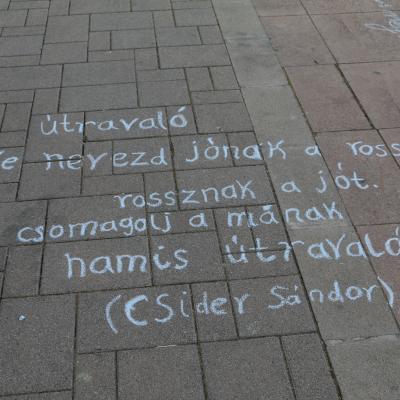 útravaló
e nevezd jónak a ross
rossznak a jót.
csomagolj a mának
hamis útravaló
(CSider Sándor)